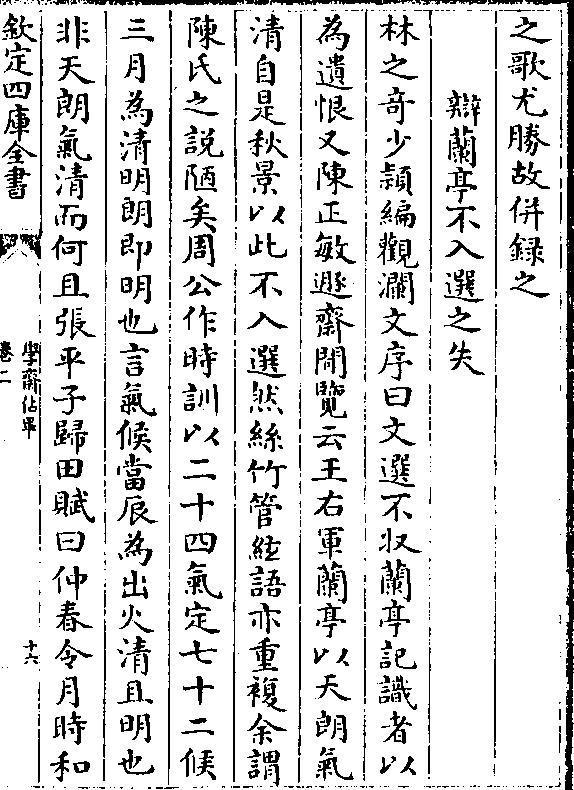 之歌尤勝故併録之
辯蘭亭不入選之失
林之竒少頴編觀瀾文序曰文選不収蘭亭記識者以
為遺恨又陳正敏遯齋閒覽云王右軍蘭亭以天朗氣
清自是秋景以此不入選然絲竹管絃語亦重複余謂
陳氏之説陋矣周公作時訓以二十四氣定七十二候
三月為清明朗即明也言氣候當辰為出火清且明也
非天朗氣清而何且張平子歸田賦曰仲春令月時和
欽定四庫全書
學齋佔畢
卷二
十六